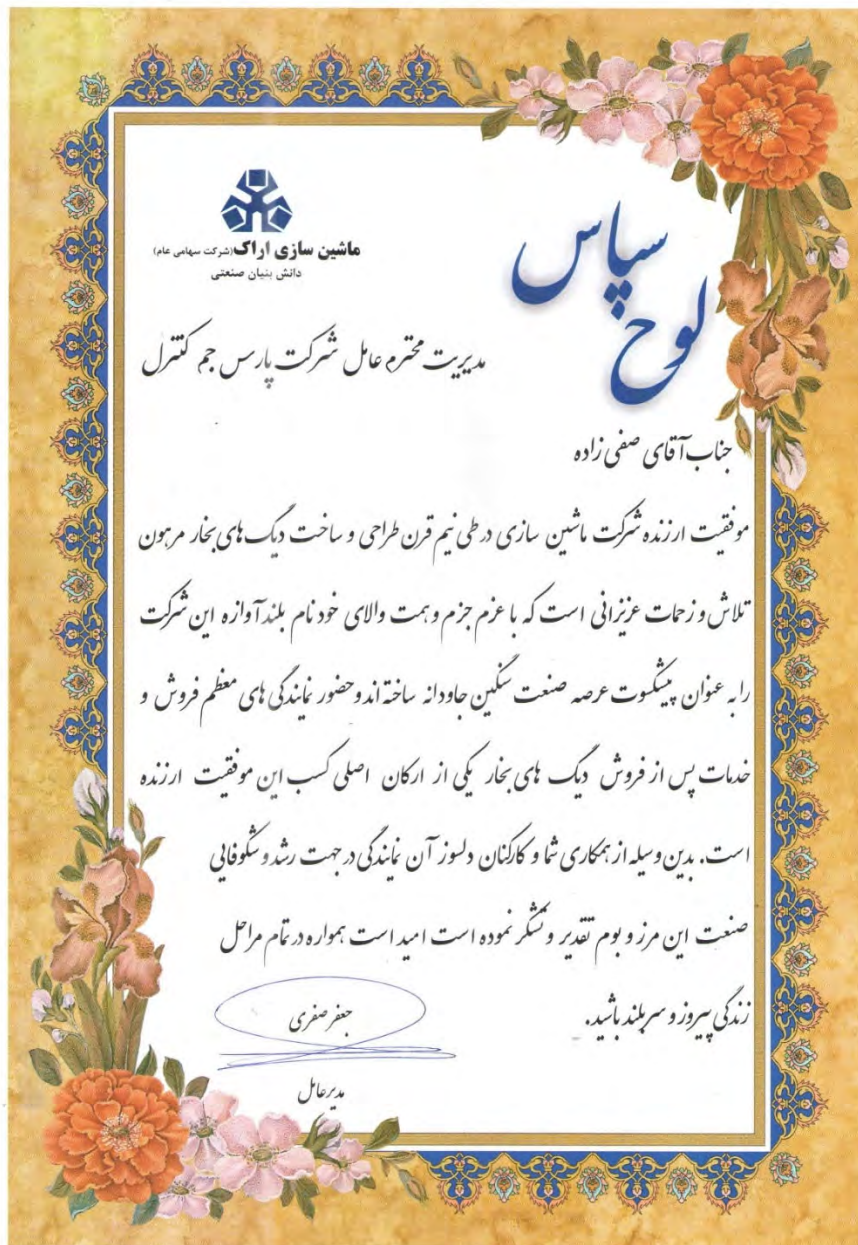 ماشین سازی اراک (شرکت سهامی عام)
دانش بنیان صنعتی
لوح سپاس
مدیریت محترم عامل شرکت پارس جم کنترل
جناب آقای صفی زاده
موفقیت ارزنده شرکت ماشین سازی در طی نیم قرن طراحی و ساخت دیگ های بخار مرهون
تلاش و زحمات عزیزانی است که با عزم جزم و همت والای خود نام بلند آوازه این شرکت
را به عنوان پیشکسوت عرصه صنعت سنگین جاودانه ساخته اند و حضور نمایندگی های معظم فروش و
خدمات پس از فروش دیگ های بخار یکی از ارکان اصلی کسب این موفقیت ارزنده
است. بدین وسیله از همکاری شما و کارکنان دلسوز آن نمایندگی در جهت رشد و شکوفایی
صنعت این مرز و بوم تقدیر و تشکر نموده است امید است همواره در تمام مراحل
زندگی پیروز و سربلند باشید.
جعفر صفری
مدیرعامل